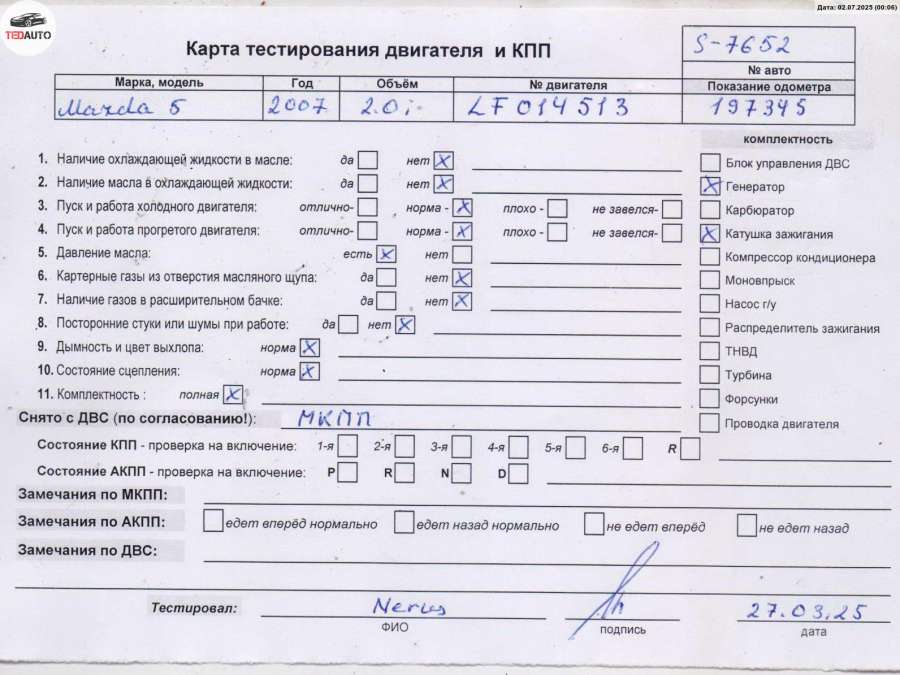 Дата: 02.07.2025 (00:06)
TEDAUTO
Карта тестирования двигателя и КПП
S-7652
№ авто
Марка, модель Год Объём № двигателя Показание одометра
Mazda 5 2007 2.0i LF 014513 197345
комплектность
1. Наличие охлаждающей жидкости в масле: да нет X
Блок управления ДВС
2. Наличие масла в охлаждающей жидкости: да нет X
X Генератор
3. Пуск и работа холодного двигателя: отлично- норма - X плохо - не завелся-
Карбюратор
4. Пуск и работа прогретого двигателя: отлично- норма - X плохо - не завелся-
X Катушка зажигания
5. Давление масла: есть X нет
Компрессор кондиционера
6. Картерные газы из отверстия масляного щупа: да нет X
Моновпрыск
7. Наличие газов в расширительном бачке: да нет X
Насос г/у
8. Посторонние стуки или шумы при работе: да нет X
Распределитель зажигания
9. Дымность и цвет выхлопа: норма X
ТНВД
10. Состояние сцепления: норма X
Турбина
11. Комплектность : полная X
Форсунки
Снято с ДВС (по согласованию!): МКПП
Проводка двигателя
Состояние КПП - проверка на включение: 1-я 2-я 3-я 4-я 5-я 6-я R
Состояние АКПП - проверка на включение: P R N D
Замечания по МКПП:
Замечания по АКПП: едет вперёд нормально едет назад нормально не едет вперёд не едет назад
Замечания по ДВС:
Тестировал: Nerius 27.03.25
ФИО подпись дата